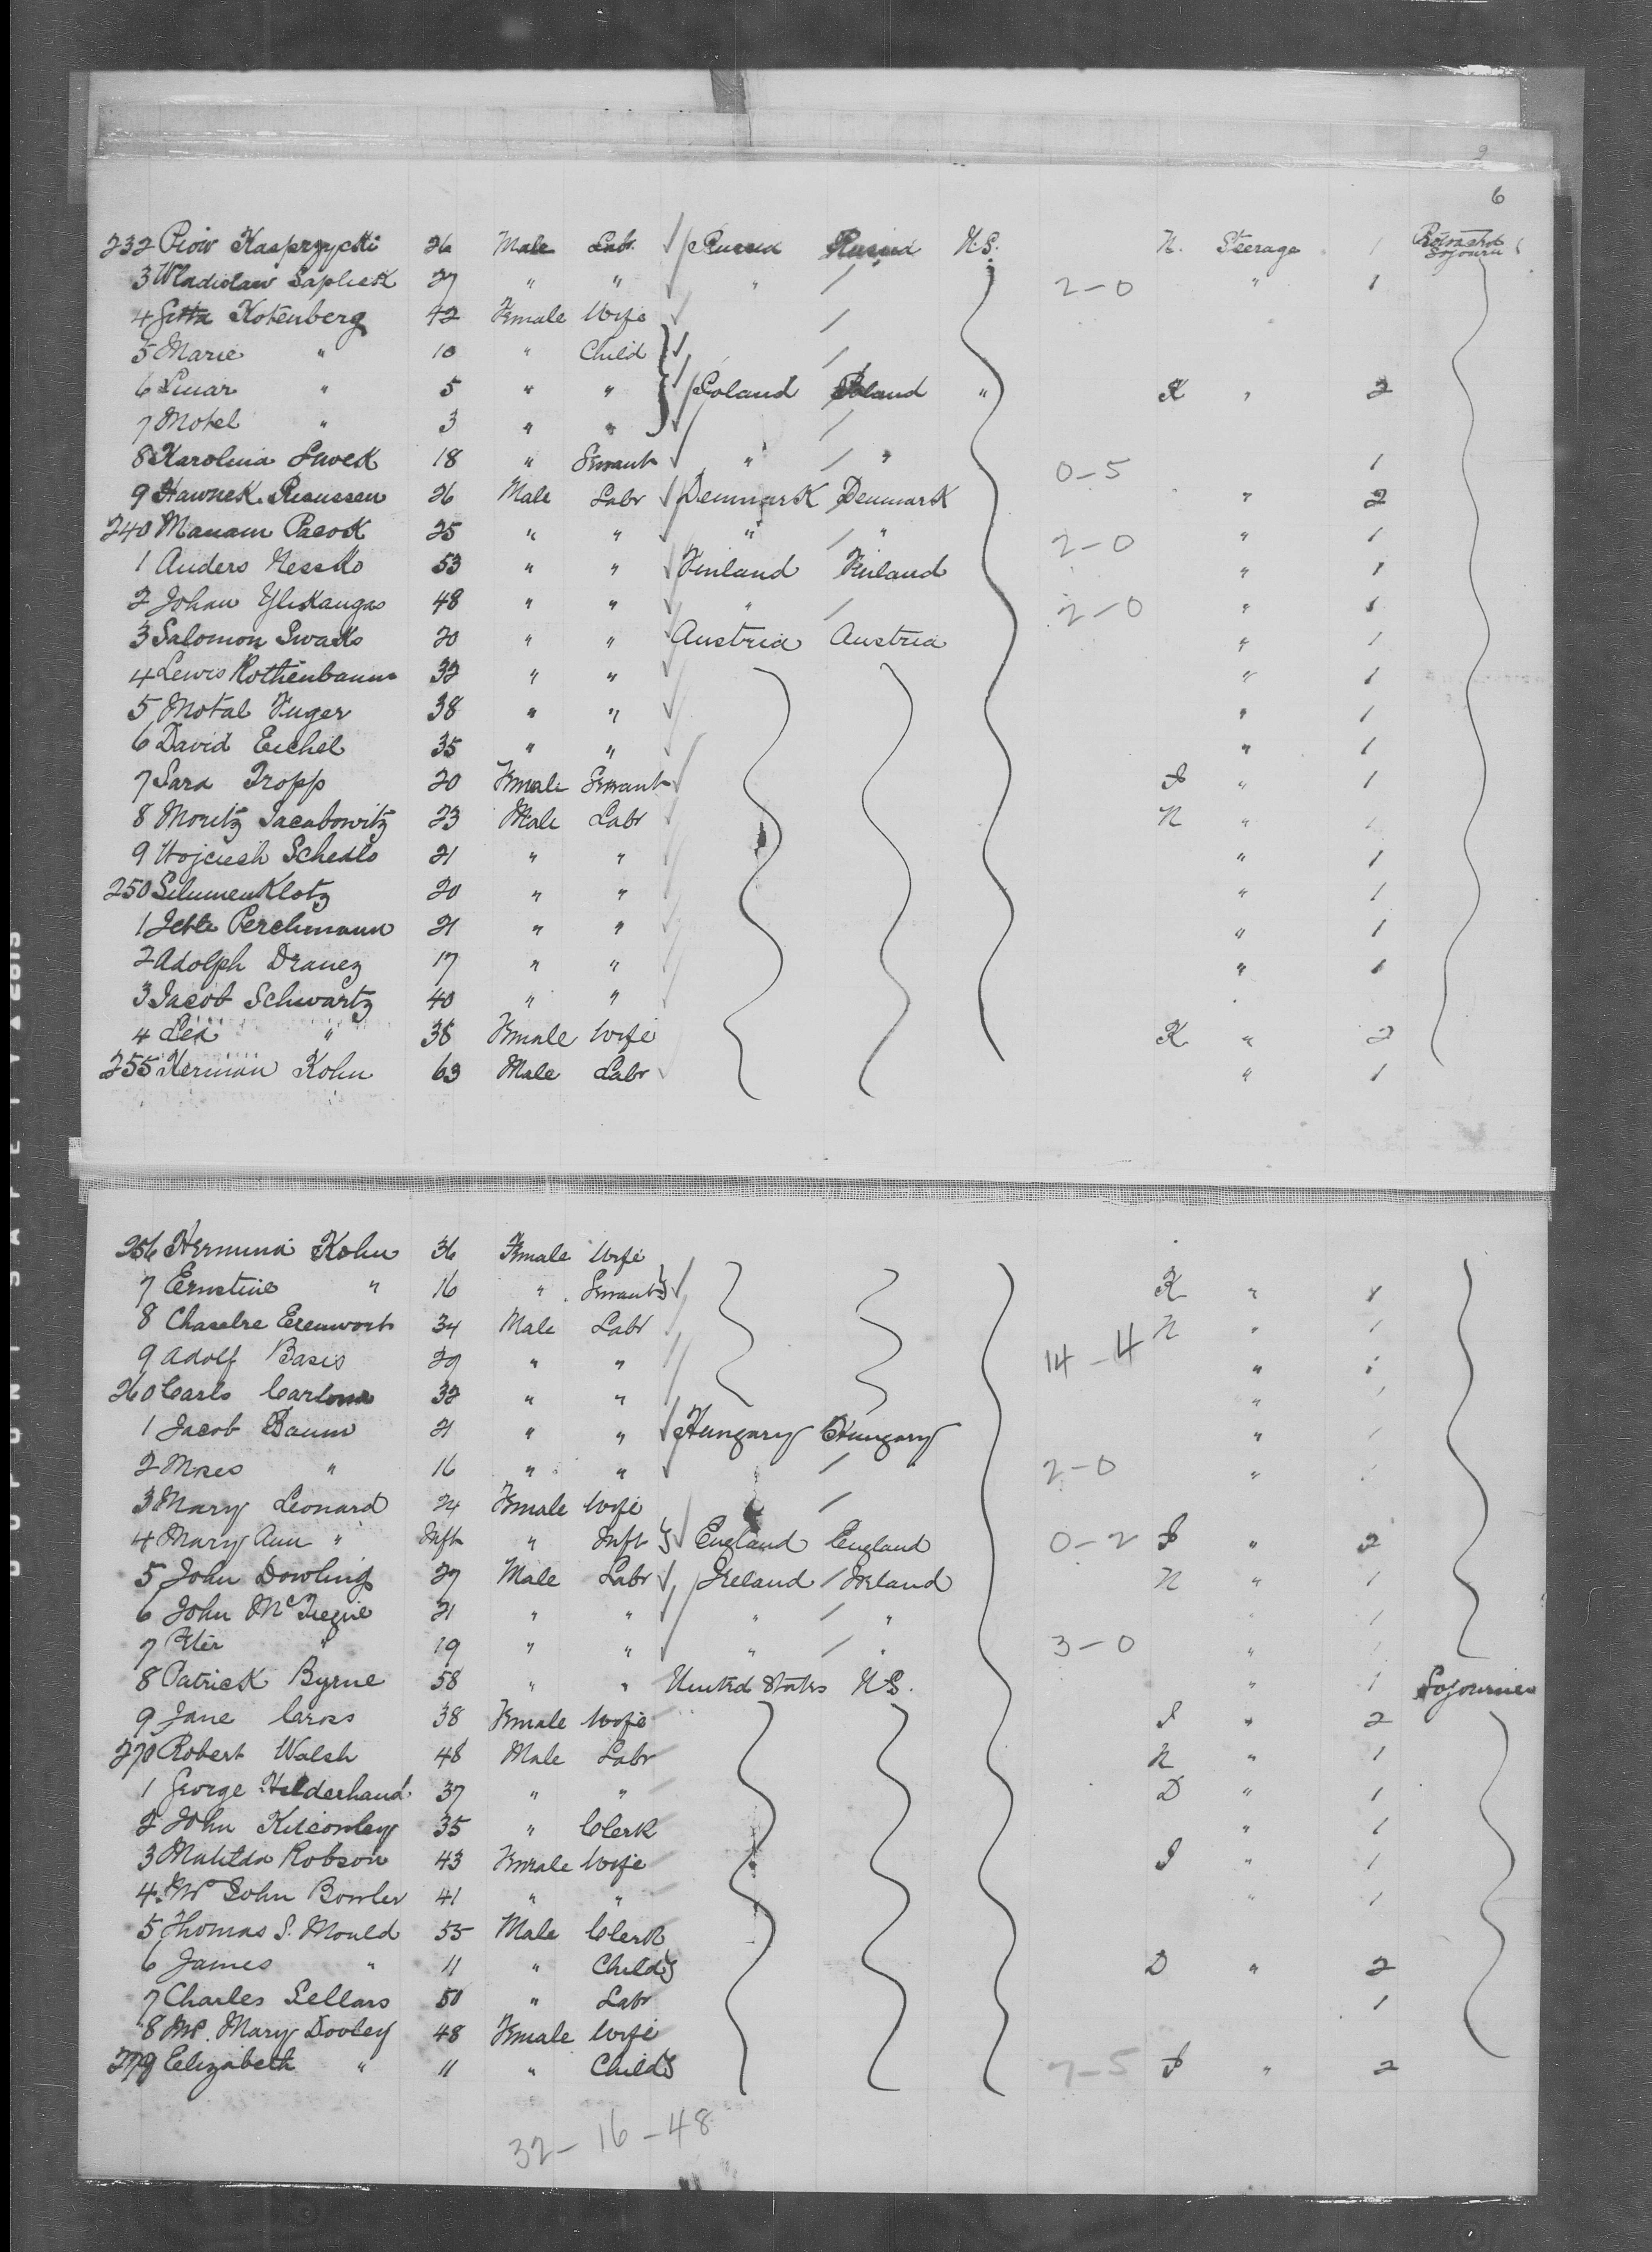 6
232 Piow Kasprzycki 26 Male Labr. Russia Russia U.S. N. Steerage 1
3 Wladislaw Saplick 27 " " " 2-0 " 1
4 Gitta Kotenberg 42 Female Wife
5 Marie " 10 " Child
6 " 5 " " Poland Poland " K " 2
7 Motel " 3 " "
8 Karolina 18 " Servant " " 0-5 1
9 26 Male Labr Denmark Denmark " 2
240 Manam Pacok 25 " " " " 2-0 " 1
1 Anders 53 " " Finland Finland " 1
2 Johan Ylikangas 48 " " " 2-0 " 1
3 Salomon 20 " " Austria Austria " 1
4 Lewis Rothenbaum 32 " " " 1
5 Motal Fuger 38 " " " 1
6 David Eichel 35 " " " 1
7 Sara Tropp 20 Female Servant I " 1
8 Moritz Jacabowitz 23 Male Labr N " 1
9 Wojciech 21 " " " 1
250 Klotz 20 " " " 1
1 Jette Perchmann 21 " " " 1
2 Adolph 17 " " " 1
3 Jacob Schwartz 40 " "
4 Lea " 38 Female Wife K " 2
255 Herman Kohn 63 Male Labr " 1
256 Hermina Kohn 36 Female Wife
7 Ernstine " 16 " Servant K " 1
8 34 Male Labr N " 1
9 Adolf Basis 29 " " 14-4 " 1
260 Carlo 32 " " " 1
1 Jacob Baum 21 " " Hungary Hungary " 1
2 Moses " 16 " " 2-0 "
3 Mary Leonard 24 Female Wife
4 Mary Ann " Inft " Inft England England 0-2 I " 2
5 John Dowling 27 Male Labr Ireland Ireland N " 1
6 John 21 " " " " " 1
7 Peter " 19 " " " " 3-0 "
8 Patrick Byrne 58 " " United States U.S. " 1 Sojourner
9 Jane Cross 38 Female Wife I " 2
270 Robert Walsh 48 Male Labr N " 1
1 George 37 " " D " 1
2 John 35 " Clerk " 1
3 Matilda Robson 43 Female Wife I " 1
4 Mrs John Bowler 41 " " " 1
5 Thomas S. Mould 55 Male Clerk
6 James " 11 " Child D " 2
7 Charles Sellars 50 " Labr 1
8 Mrs. Mary Dooley 48 Female Wife
279 Elizabeth " 11 " Child 7-5 I " 2
32-16-48